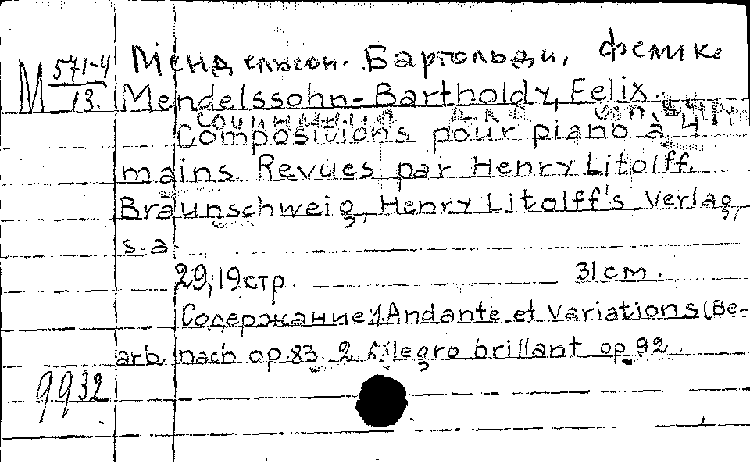 М 571-4/13.
Мендельсон-Бартольди, Феликс
Mendelssohn-Bartholdy, Felix.
Сочинения для
Compositions pour piano à 4
mains. Revues par Henry Litolff.
Braunschweig, Henry Litolff's Verlag,
s.a.
29,19 стр. 31 cm.
Содержание: 1 Andante et Variations (Be-
arb. nach op.83. 2 Allegro brillant op.92.
9932